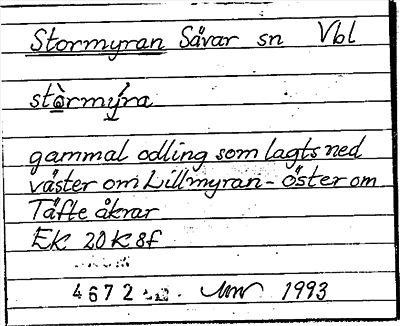 Stormyran Sävar sn Vbl
stòrmýra
gammal odling som lagts ned
väster om Lillmyran - öster om
Täfte åkrar
EK 20K8f
4672 1993